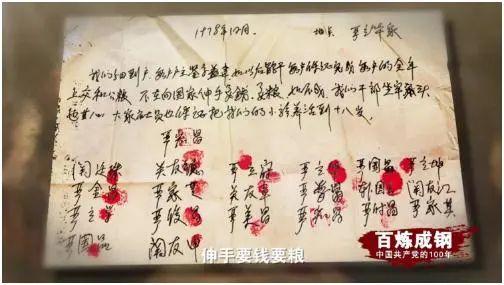 1978年12月 地点 严立华家
我们分田到户 每户户主签字盖章 如以后能干 每户保证完成每户的全年
上交和公粮 不在向国家伸手要钱要粮 如不成 我们干部坐牢
也干心 大家社员也保证把我们的小孩养活到十八岁
严宏昌
关廷珠 关友德 严立富 严立华 严国昌 严立坤
严金昌 严家芝 关友章 严学昌 韩国云 关友江
严立学 严俊昌 严美昌 严付昌 严家其
严国品 关友申
伸手要钱要粮
百炼成钢
中国共产党的100年